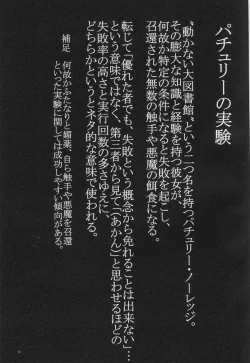 パチュリーの実験
“動かない大図書館”という二つ名を持つパチュリー・ノーレッジ。
その膨大な知識と経験を持つ彼女が、
何故か特定の条件になると失敗を起こし、
召還された無数の触手や悪魔の餌食になる。
転じて「優れた者でも、失敗という概念から免れることは出来ない」…
という意味ではなく、第三者から見て（あかん）と思わせるほどの
失敗率の高さと実行回数の多さゆえに、
どちらかというとネタ的な意味で使われる。
補足　何故かふたなりと媚薬、自ら触手や悪魔を召還
といった実験に関しては成功しやすい傾向がある。